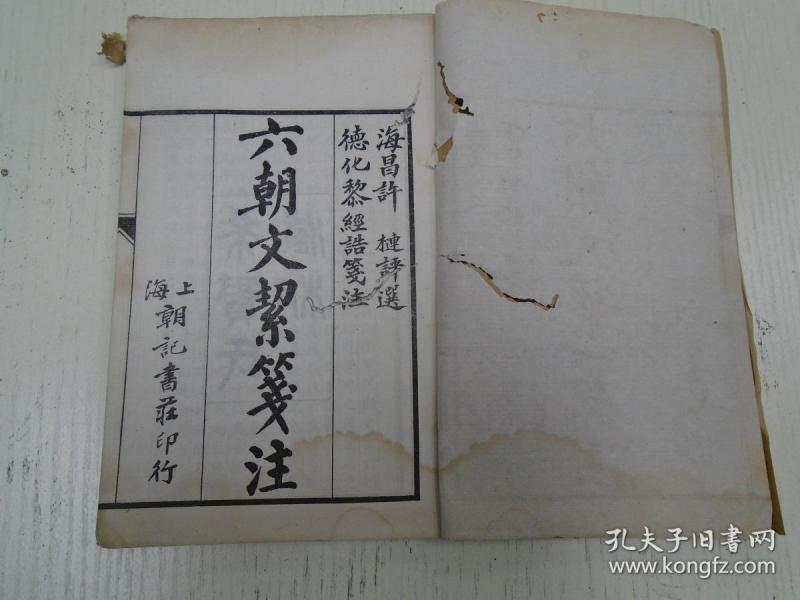 海昌許 槤評選
德化黎經誥箋注
六朝文絜箋注
上海朝記書莊印行
孔夫子旧书网
www.kongfz.com